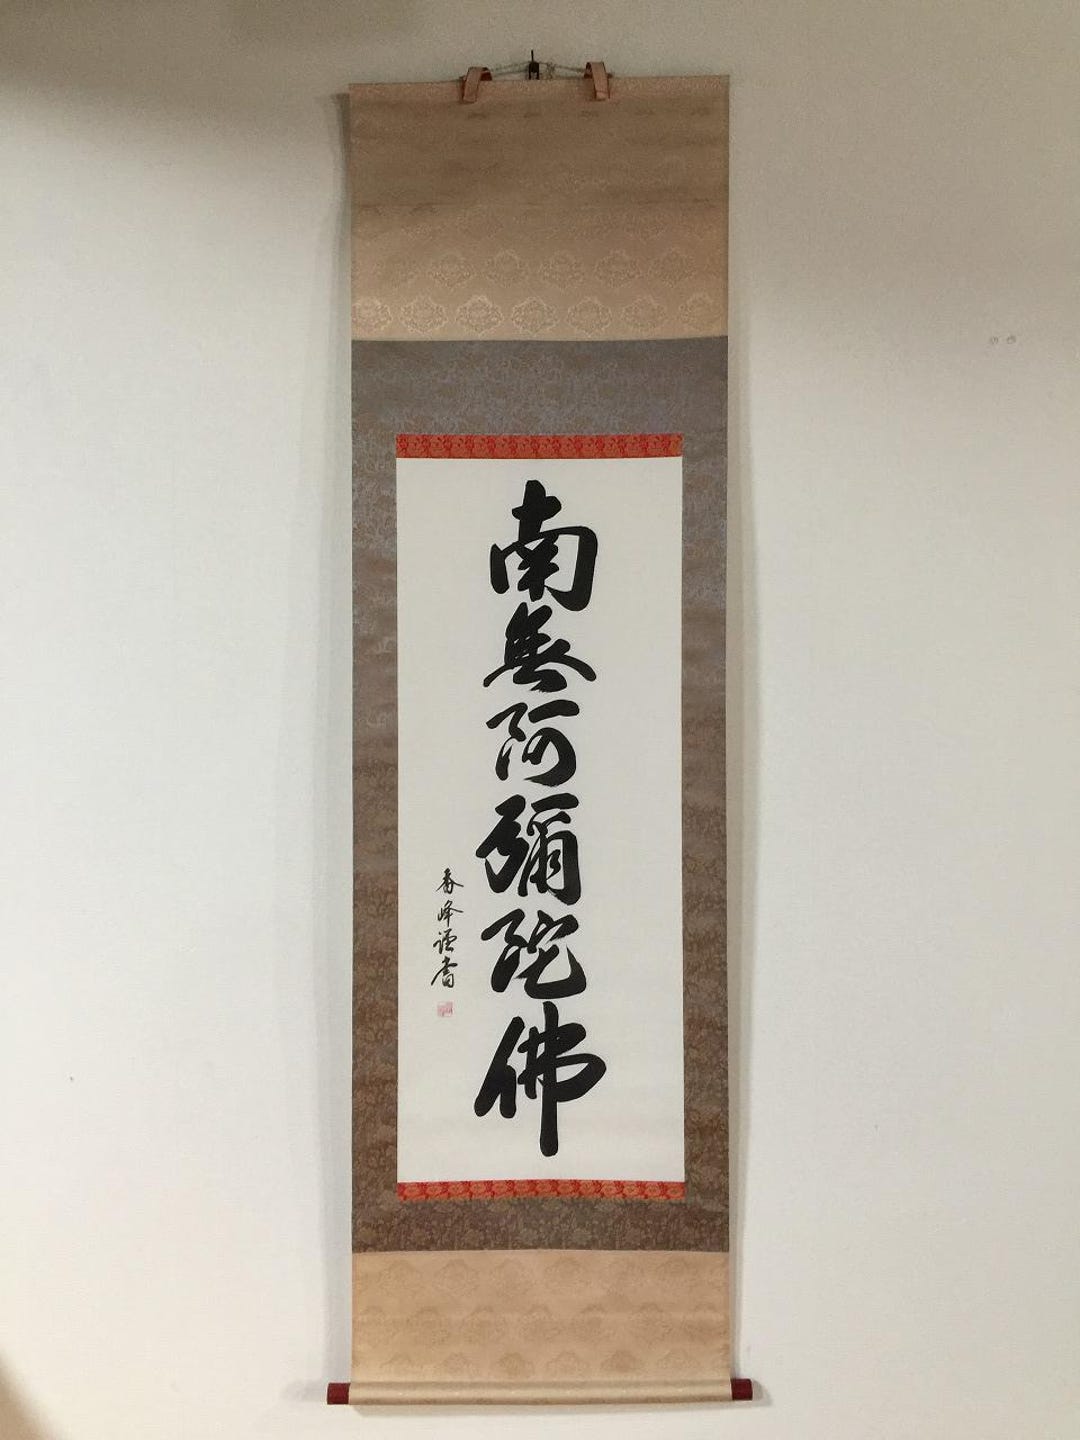 南無阿彌陀佛
春峰謹書